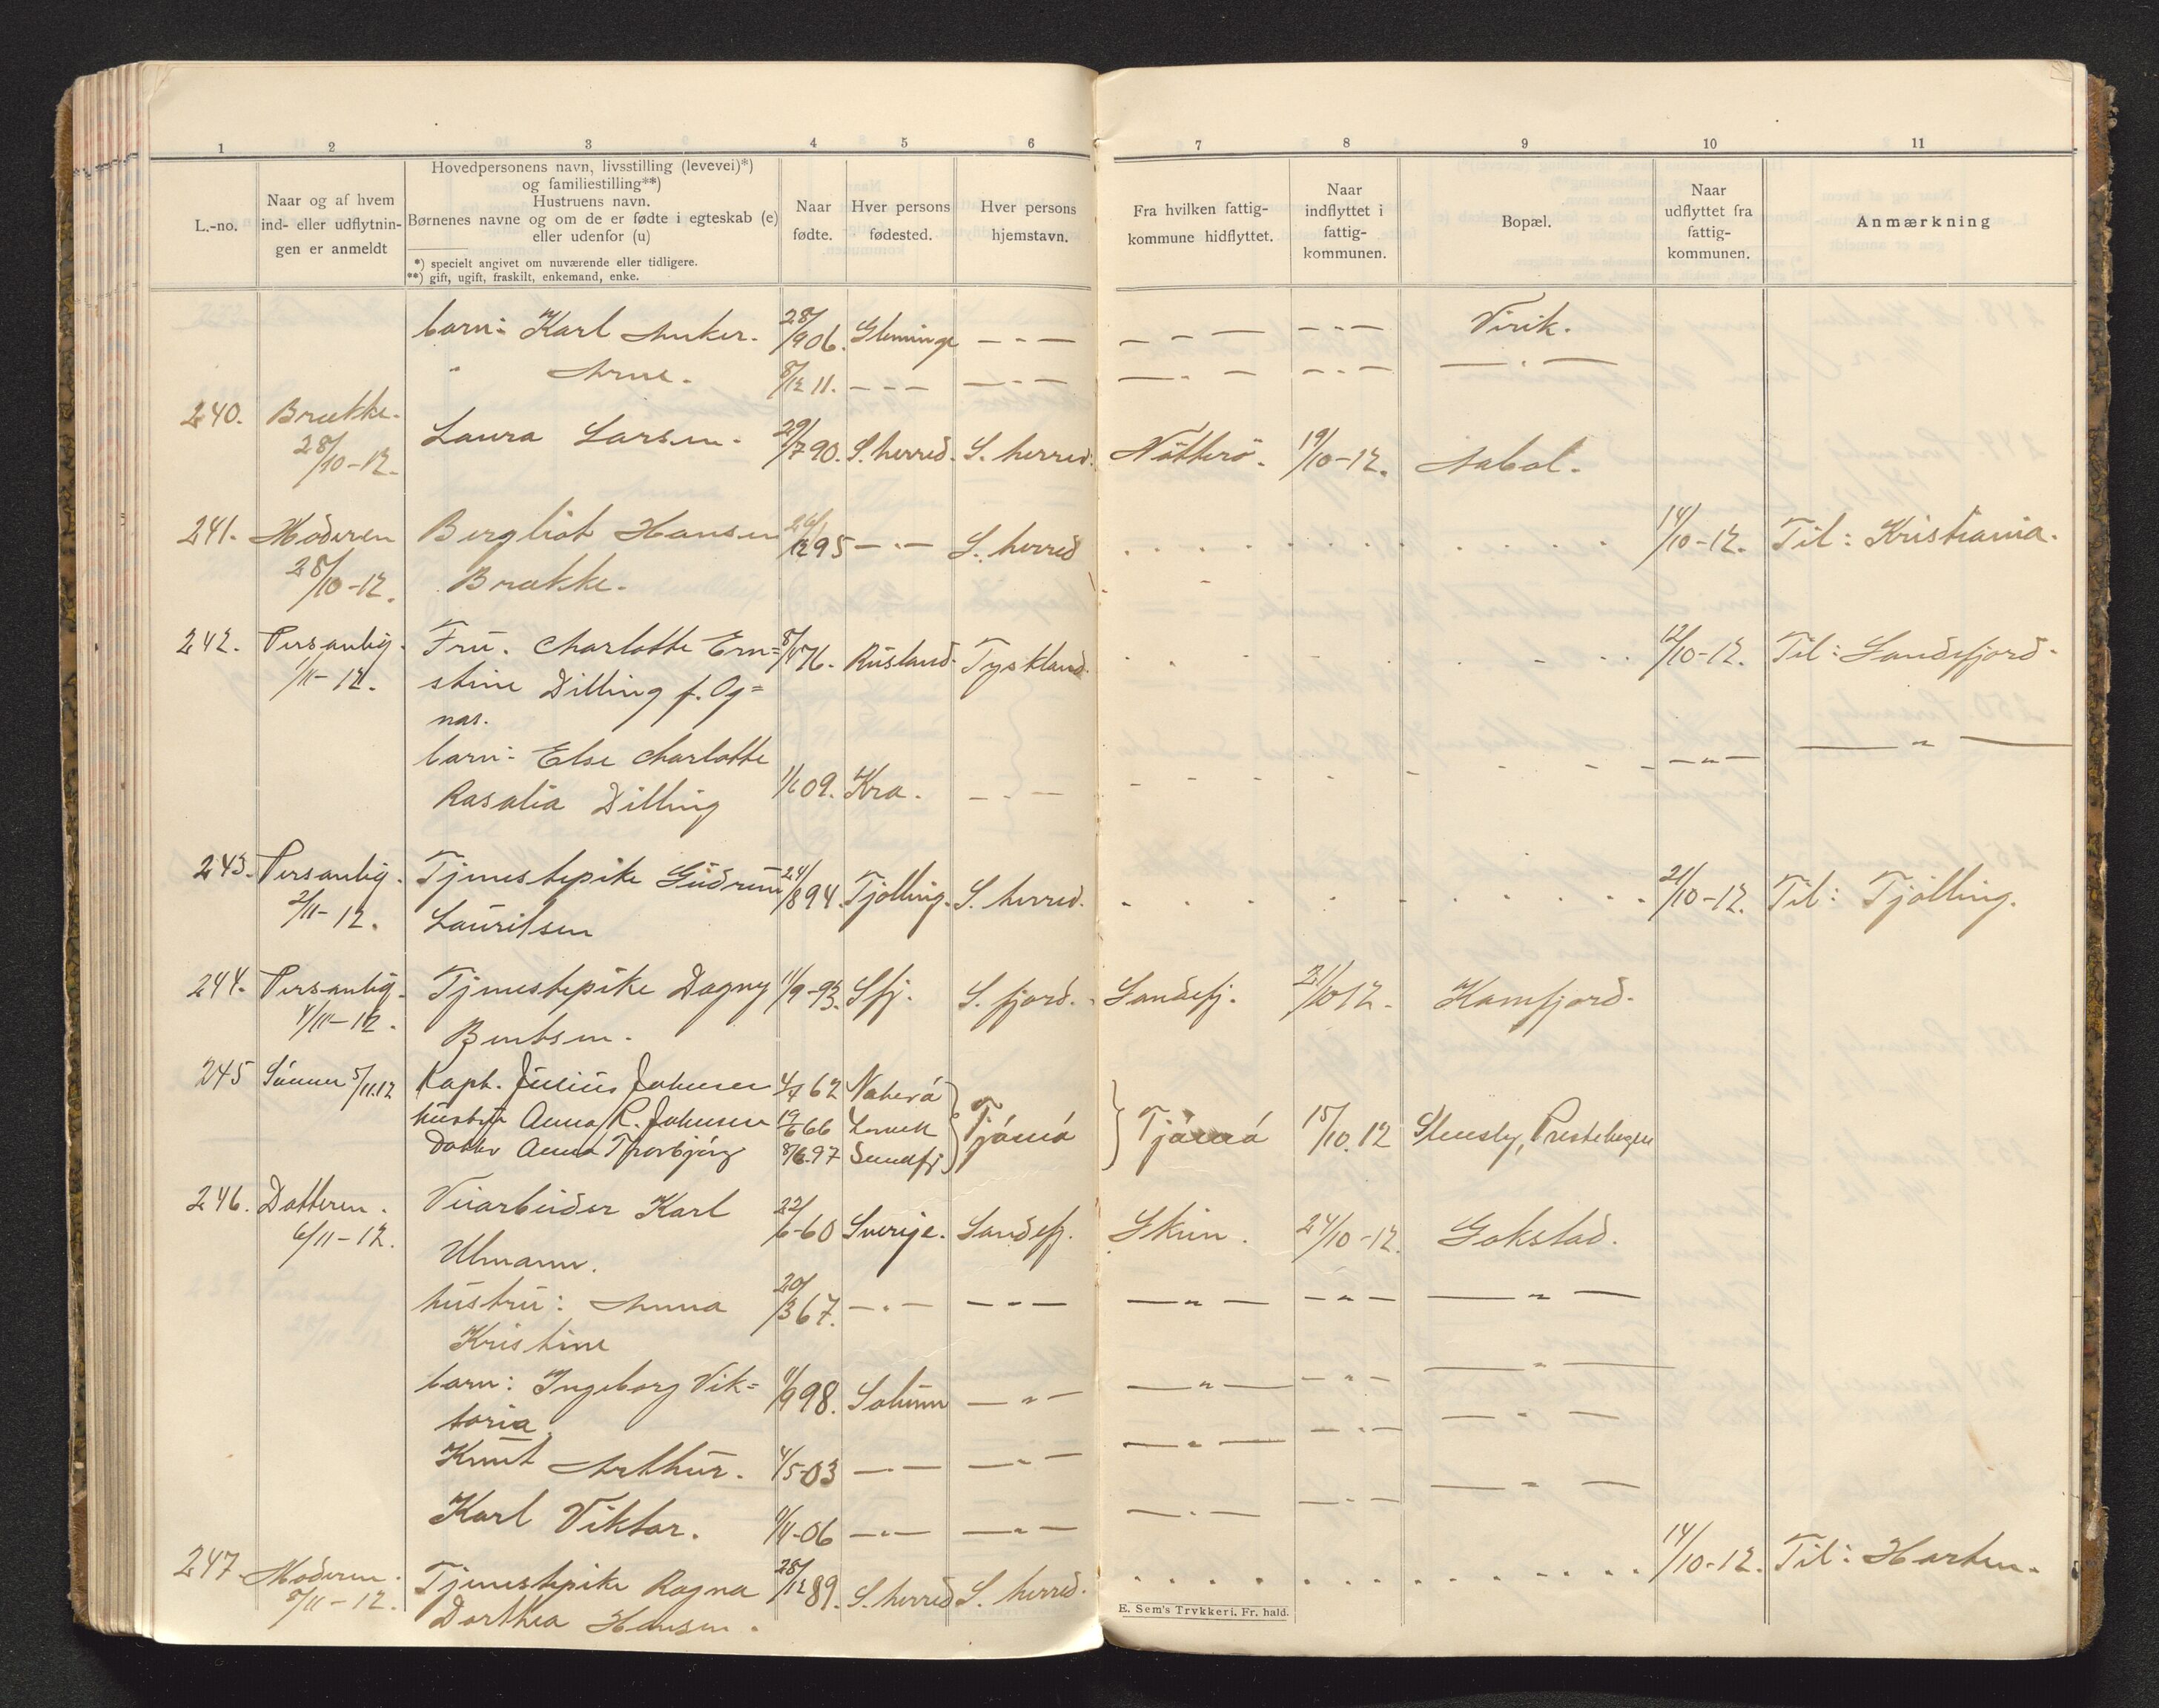 1 2 3 4 5 6 7 8 9 10 11
L.-no.
Naar og af hvem
ind- eller udflytnin-
gen er anmeldt
Hovedpersonens navn, livsstilling (levevei)*)
og familiestilling**)
Hustruens navn.
Børnenes navne og om de er fødte i egteskab (e)
eller udenfor (u)
*) specielt angivet om nuværende eller tidligere.
**) gift, ugift, fraskilt, enkemand, enke.
Naar
fødte.
Hver persons
fødested.
Hver persons
hjemstavn.
Fra hvilken fattig-
kommune hidflyttet.
Naar
indflyttet i
fattig-
kommunen.
Bopæl.
Naar
udflyttet fra
fattig-
kommunen.
Anmærkning
barn: Karl Anker. 28/906. Glemminge — " — — " — — " — Virik.
" Arne. 8/12 11. — " — — " — — " — — " — — " —
240. Brække. Laura Larsen. 29/7 90. S. herred. S. herred. Nötterö. 19/10-12. Aabol.
28/10-12.
241. Moderen Bergliot Hansen 26/12 95 — " — S. herred 14/10-12. Til: Kristiania.
28/10-12. Brække.
242. Personlig. Fru. Charlotte Ern= 8/4 76. Rusland. Tyskland. 12/10-12. Til: Sandefjord.
1/11-12. stine Dilling f. Og=
nas.
barn: Else Charlotte — " — — " —
Rosalia Dilling 1/1 09. Kra. — " —
243. Personlig. Tjenestepike Gudrun 24/8 94. Tjölling. S. herred. 21/10-12. Til: Tjölling.
2/11-12. Lauritsen
244. Personlig. Tjenestepike Dagny 11/9-93. Sfj. S. fjord. Sandefj. 21/10 12. Kamfjord.
4/11-12. Bentsen.
245 Sönnen 5/11.12 Kapt. Julius Johnsen 4/7 62 Nøterø
hustru Anna R. Johnsen 19/6 66 Larvik Tjømø Tjømø 15/10.12 Stensby, Prestehagen
Datter Anna Thorbjörg 8/6.97 Sandfj
246. Datteren. Veiarbeider Karl 22/6-60 Sverige. Sandefj. Skien. 24/10-12. Gokstad.
6/11-12. Ulmann.
hustru: Anna 20/3 67. — " — — " — — " — — " — — " —
Kristine
barn: Ingeborg Vik= 11/9 98. Solum — " — — " — — " — — " —
toria
Knut Arthur. 4/5-03 — " — — " — — " — — " — — " —
Karl Viktor. 11/11-06 — " — — " — — " — — " — — " —
247. Moderen. Tjenestepike Ragna 28/12 89. S. herred S. herred. 14/10-12. Til: Horten.
8/11-12. Dorthea Hansen.
E. Sem's Trykkeri. Fr. hald.